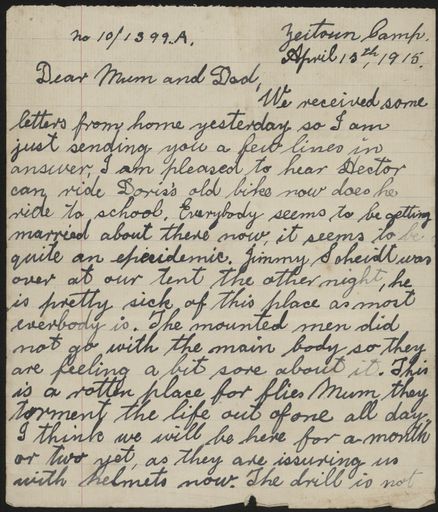 no 10/1399.A.
Zeitoun Camp.
April 13th, 1915.
Dear Mum and Dad,
We received some
letters from home yesterday so I am
just sending you a few lines in
answer, I am pleased to hear Hector
can ride Doris's old bike now does he
ride to school. Everybody seems to be getting
married about there now, it seems to be
quite an epeidemic. Jimmy Scheidt was
over at our tent the other night, he
is pretty sick of this place as most
everbody is. The mounted men did
not go with the main body so they
are feeling a bit sore about it. This
is a rotten place for flies Mum they
torment the life out of one all day,
I think we will be here for a month
or two yet, as they are issuring us
with helmets now. The drill is not